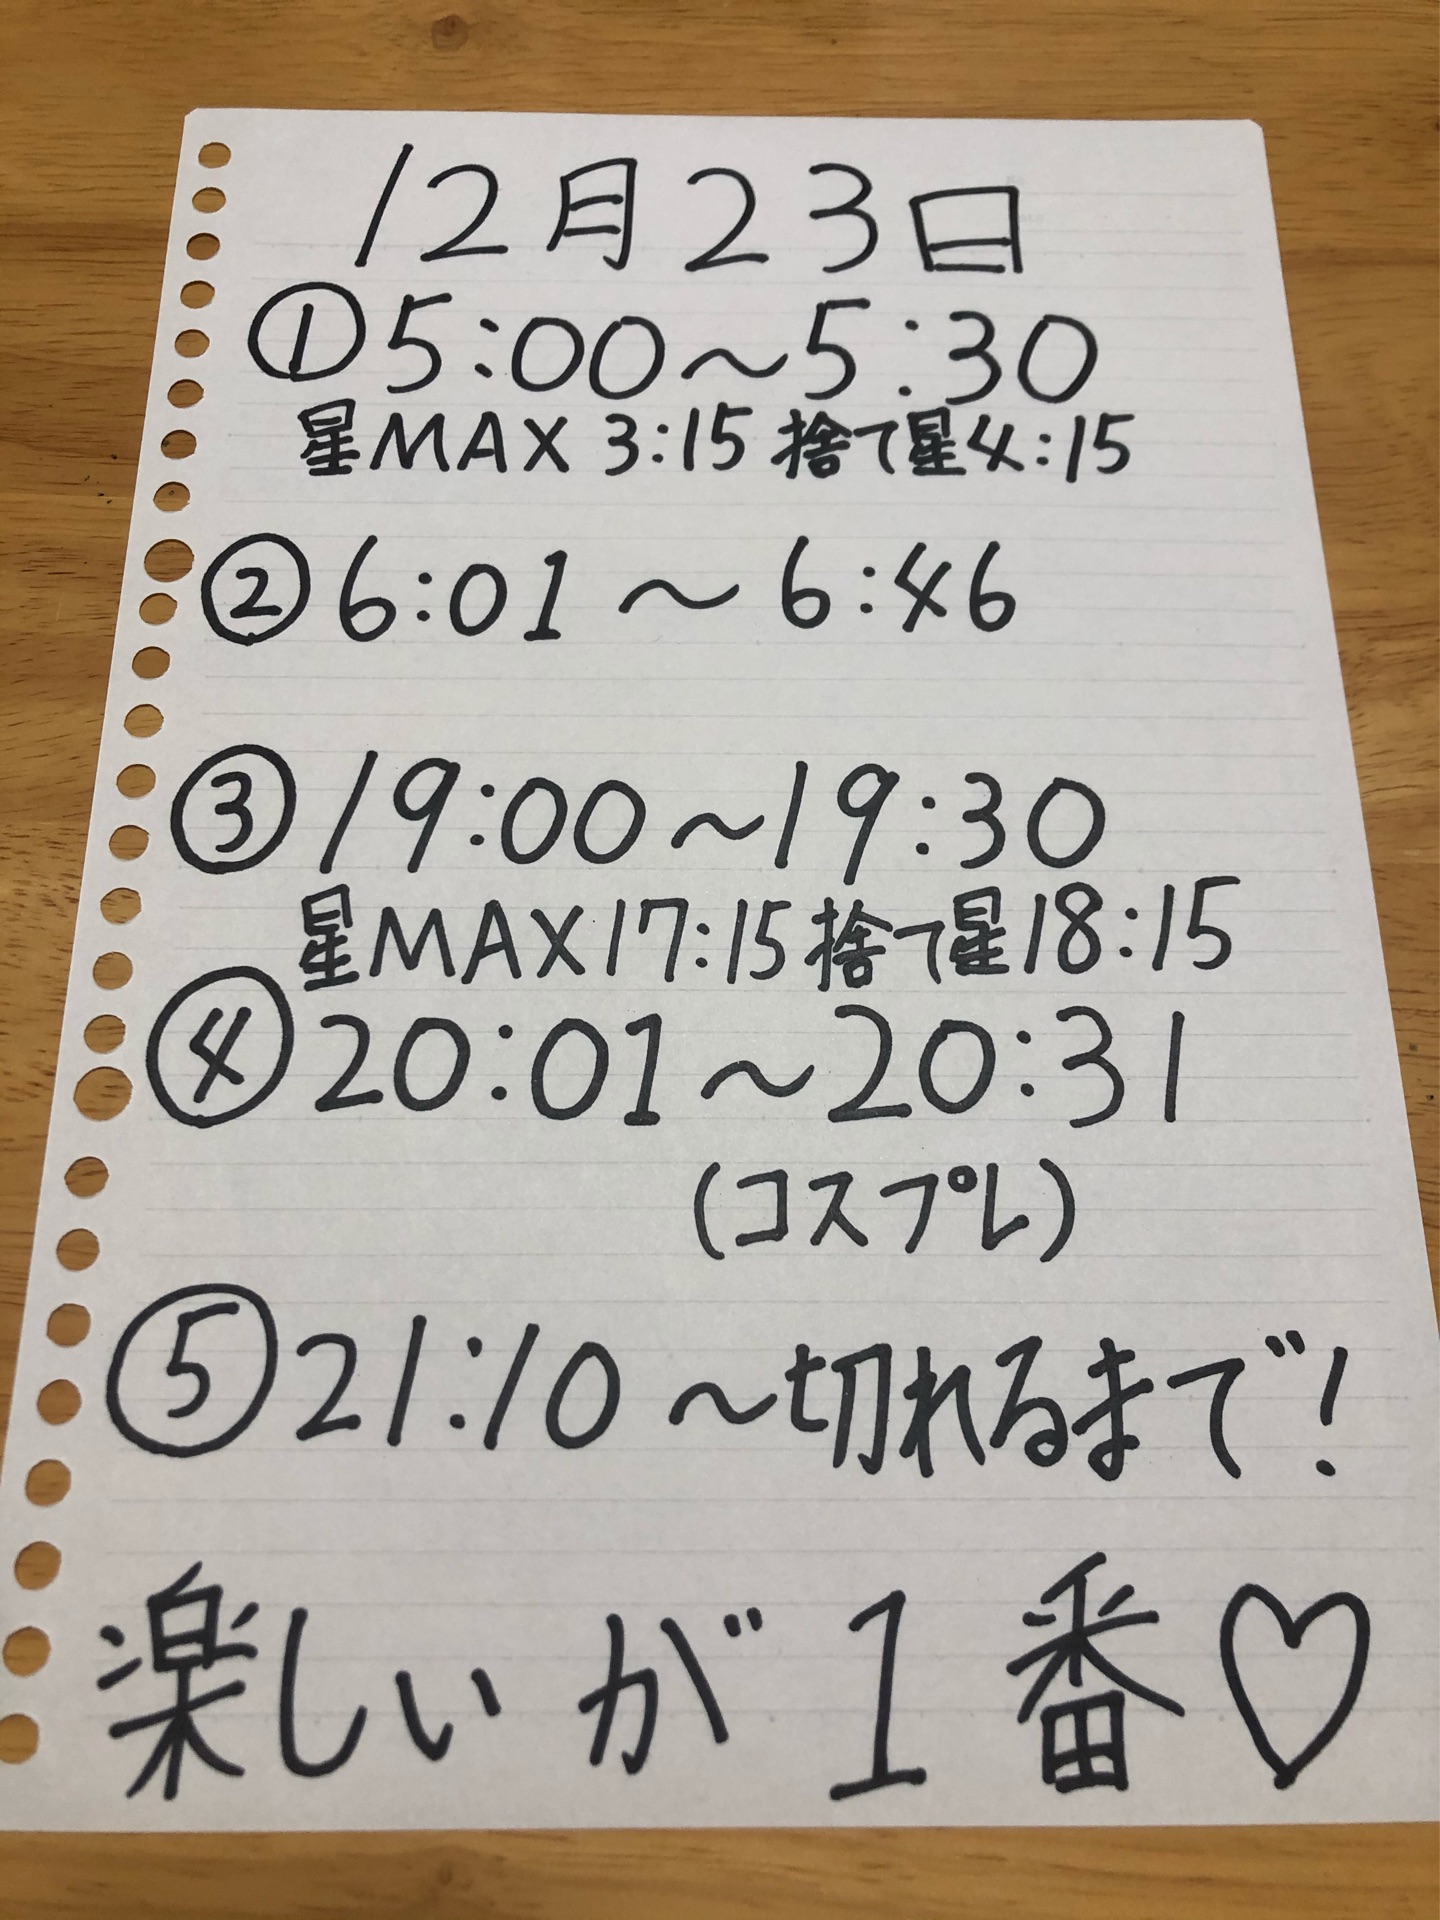 12月23日
①5:00～5:30
星MAX 3:15 捨て星4:15
②6:01～6:46
③19:00～19:30
星MAX17:15捨て星18:15
④20:01～20:31
(コスプレ)
⑤21:10～切れるまで!
楽しいが1番♡